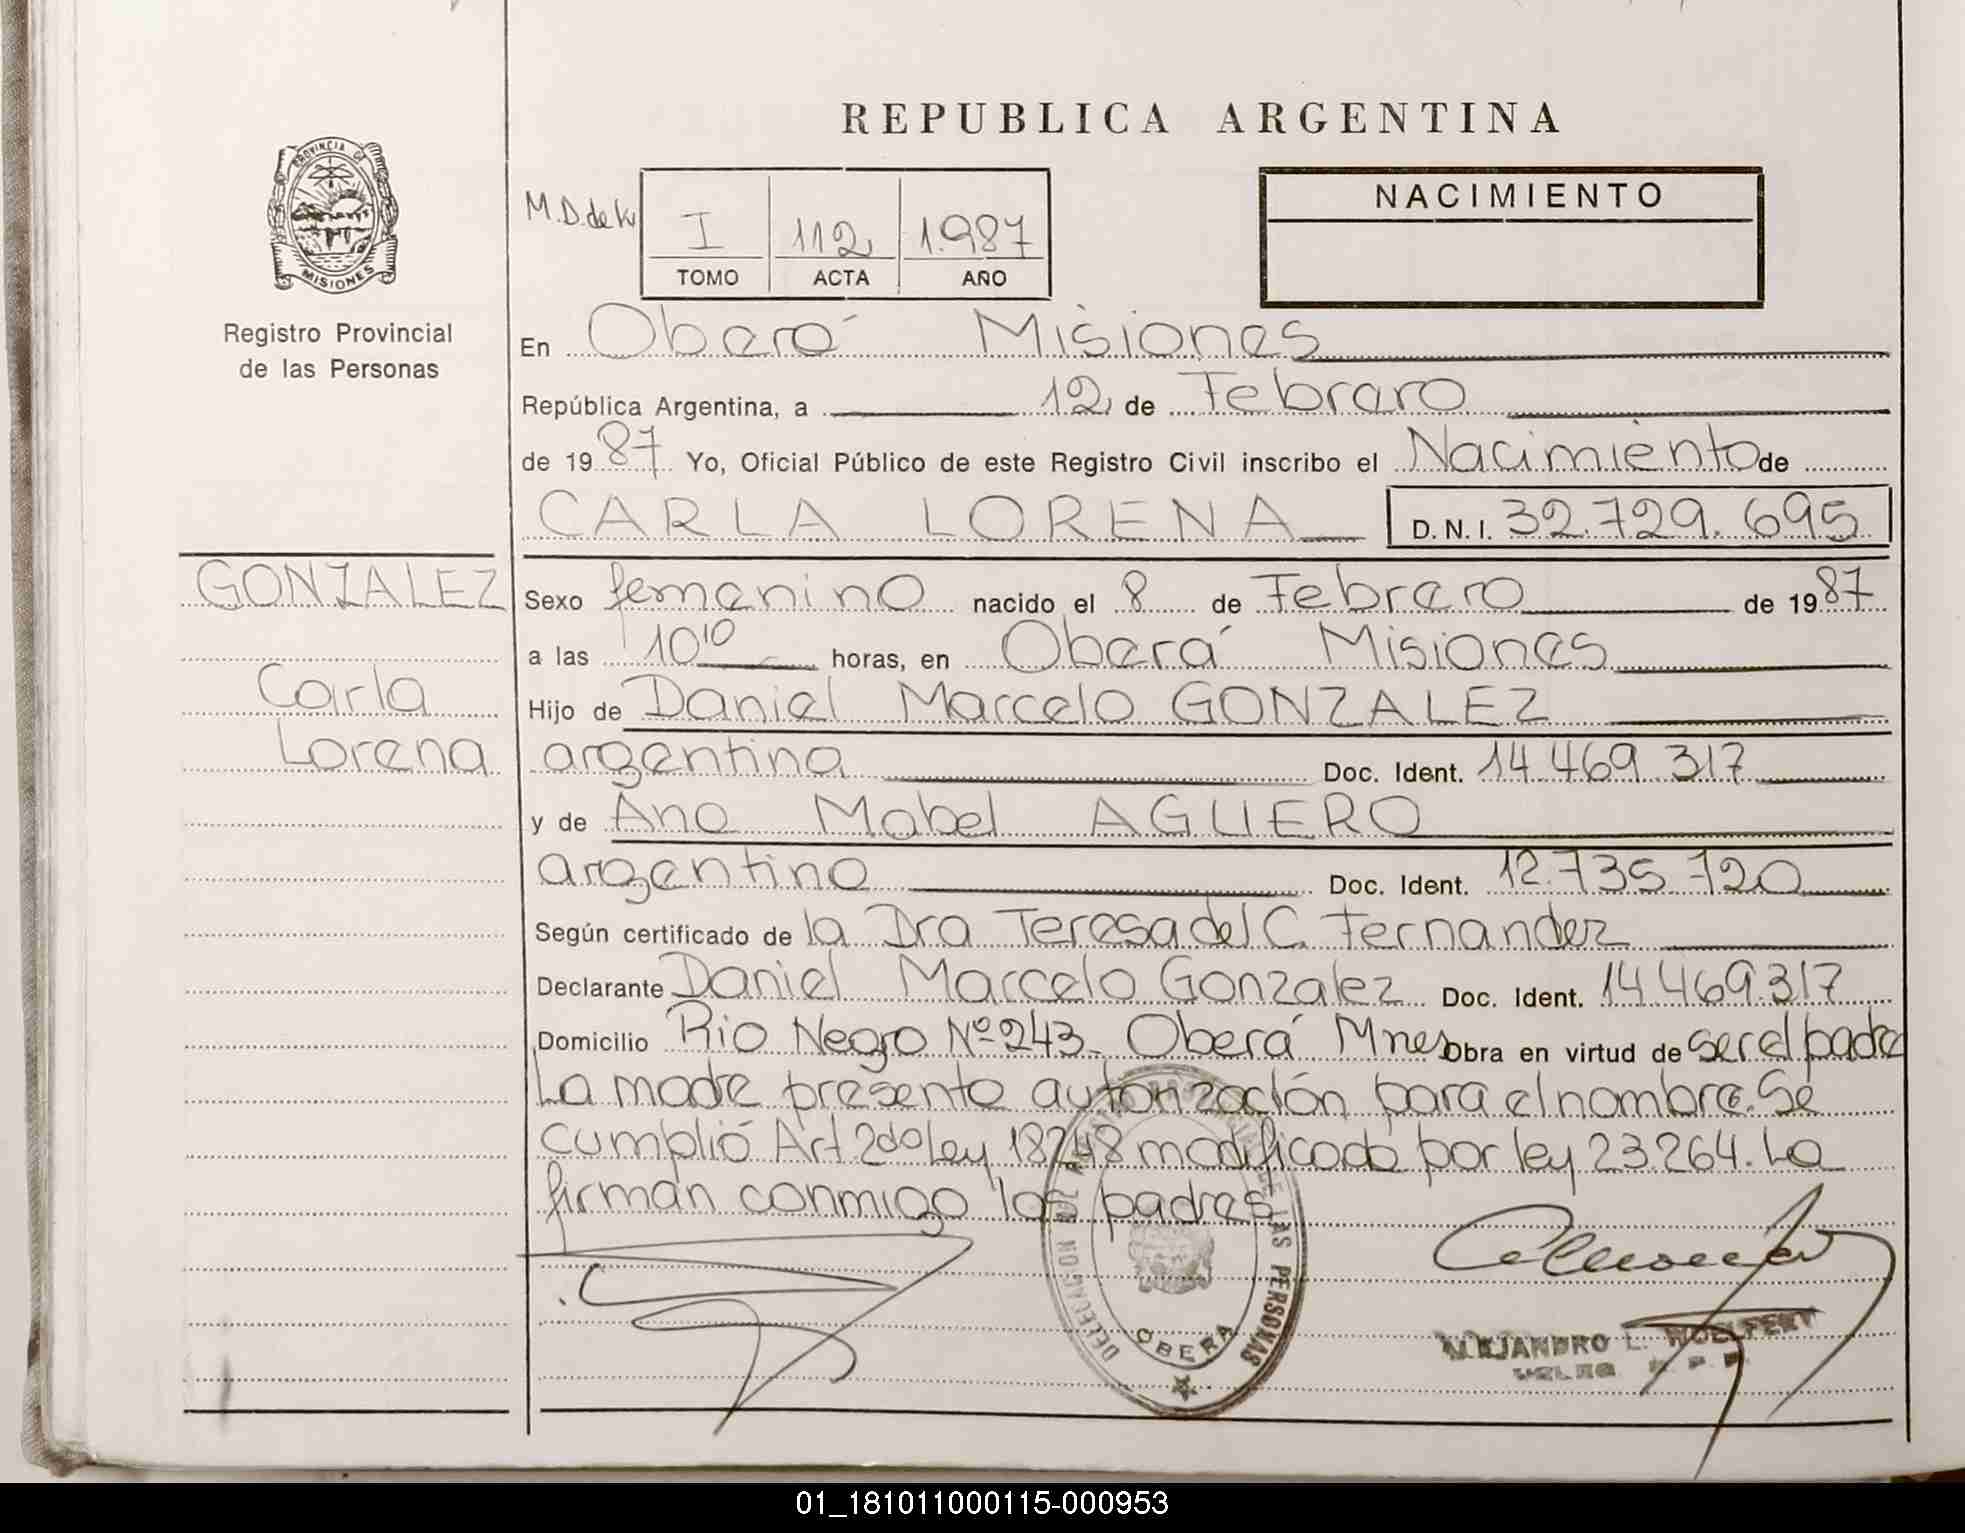 REPUBLICA ARGENTINA
PROVINCIA DE
MISIONES
Registro Provincial
de las Personas
M.D. de
I 112 1.987
TOMO ACTA AÑO
NACIMIENTO
En Oberá Misiones
República Argentina, a 12 de Febrero
de 1987 Yo, Oficial Público de este Registro Civil inscribo el Nacimiento de
CARLA LORENA D.N.I. 32.729.695
GONZALEZ
Carla
Lorena
Sexo femenino nacido el 8 de Febrero de 1987
a las 10 10 horas, en Oberá Misiones
Hijo de Daniel Marcelo GONZALEZ
argentina Doc. Ident. 14.469.317
y de Ana Mabel AGUERO
argentina Doc. Ident. 12.735.720
Según certificado de la Dra Teresa del C. Fernandez
Declarante Daniel Marcelo Gonzalez Doc. Ident. 14.469.317
Domicilio Rio Negro Nº 243. Oberá Mnes Obra en virtud de ser el padre
La madre presenta autorización para el nombre. Se
cumplió Art 2do ley 18248 modificado por ley 23.264. La
firman conmigo los padres
DELEGACION DEL DE LAS PERSONAS
OBERA
ALEJANDRO L.
01_181011000115-000953